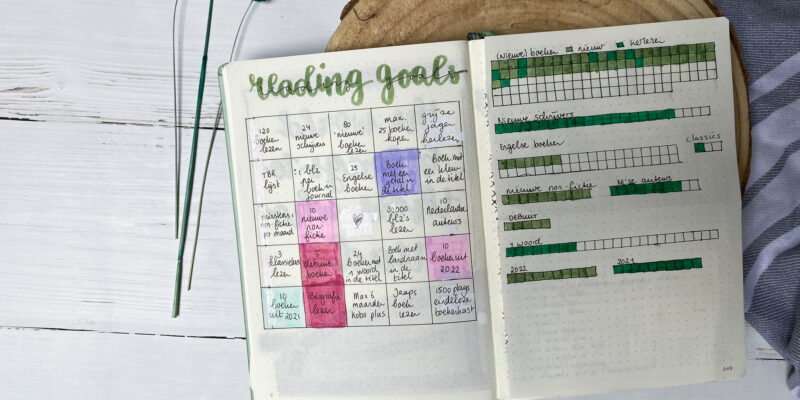 reading goals
120 boeken lezen
24 nieuwe schrijvers
80 'nieuwe' boeken lezen
max. 25 boeken kopen
grijze jager herlezen
TBR lijst
1 blz per boek in journal
25 Engelse boeken
Boek met een getal in de titel
Boek met een kleur in de titel
non-fictie per maand
10 nieuwe non-fictie
♡
30.000 blz's lezen
10 Nederlandse auteurs
3 klassiekers lezen
5 debuut boeken
24 Boeken met 1 woord in de titel
Boek met landnaam in de titel
10 boeken uit 2022
10 boeken uit 2021
Biografie lezen
Max 6 maanden kobo plus
Jaaps boek lezen
1500 plays eindeloze boekenkast
(Nieuwe) boeken nieuw herlezen
Nieuwe schrijvers
Engelse boeken
classics
nieuwe non-fictie
NLse auteurs
DEBUUT
1 woord
2022
2021